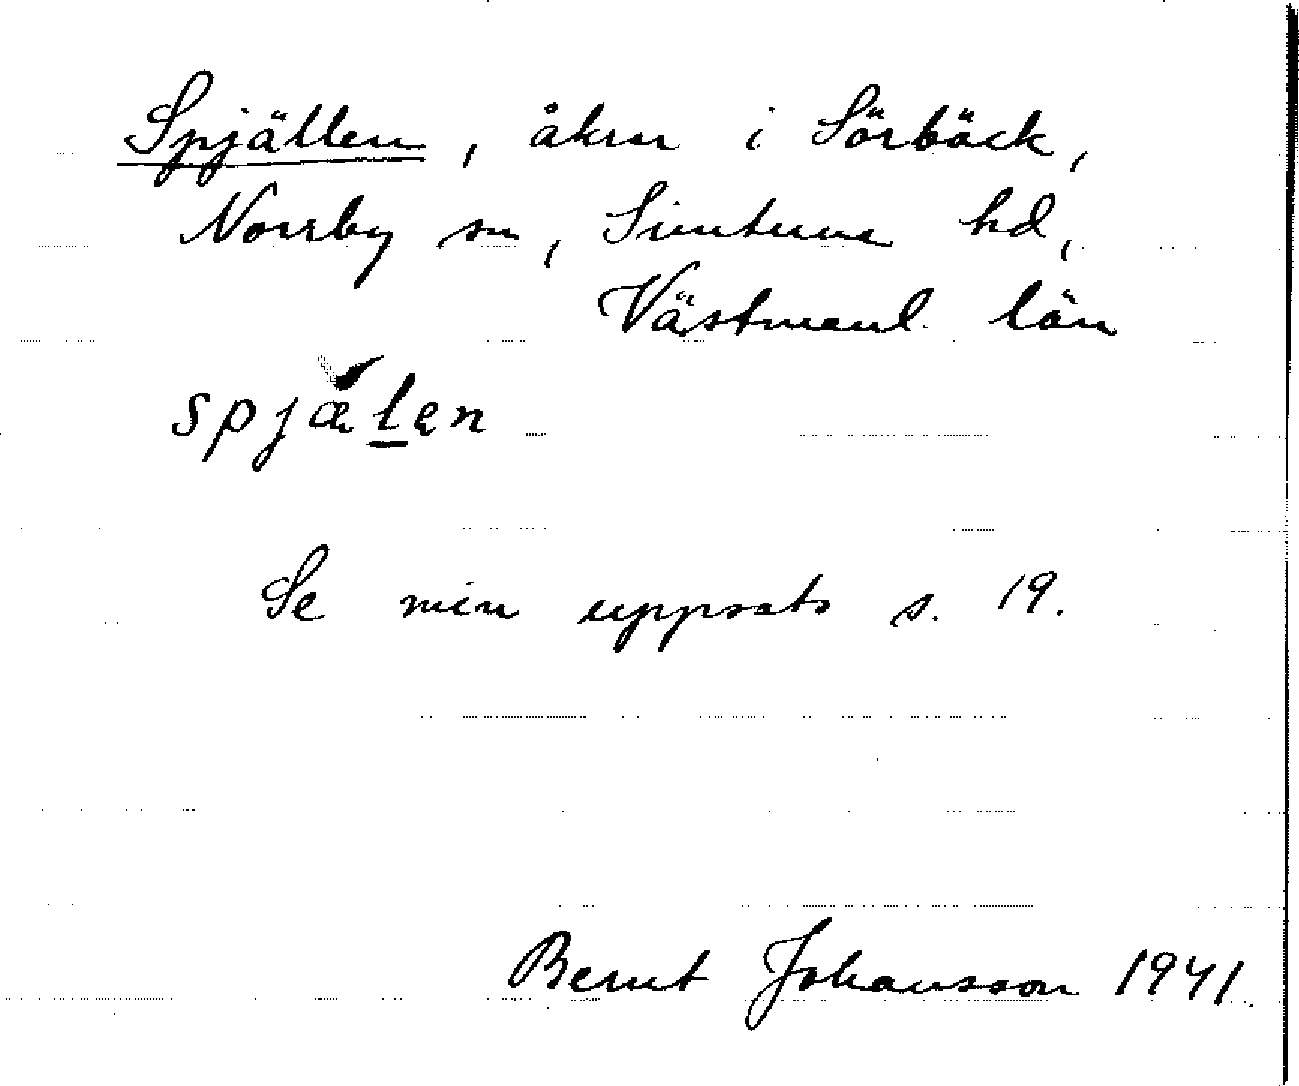 Spjällen, åkrar i Sörbäck,
Norrby sn, Simtuna hd,
Västmanl. län
spjæ̀len
Se min uppsats s. 19.
Bernt Johansson 1941.